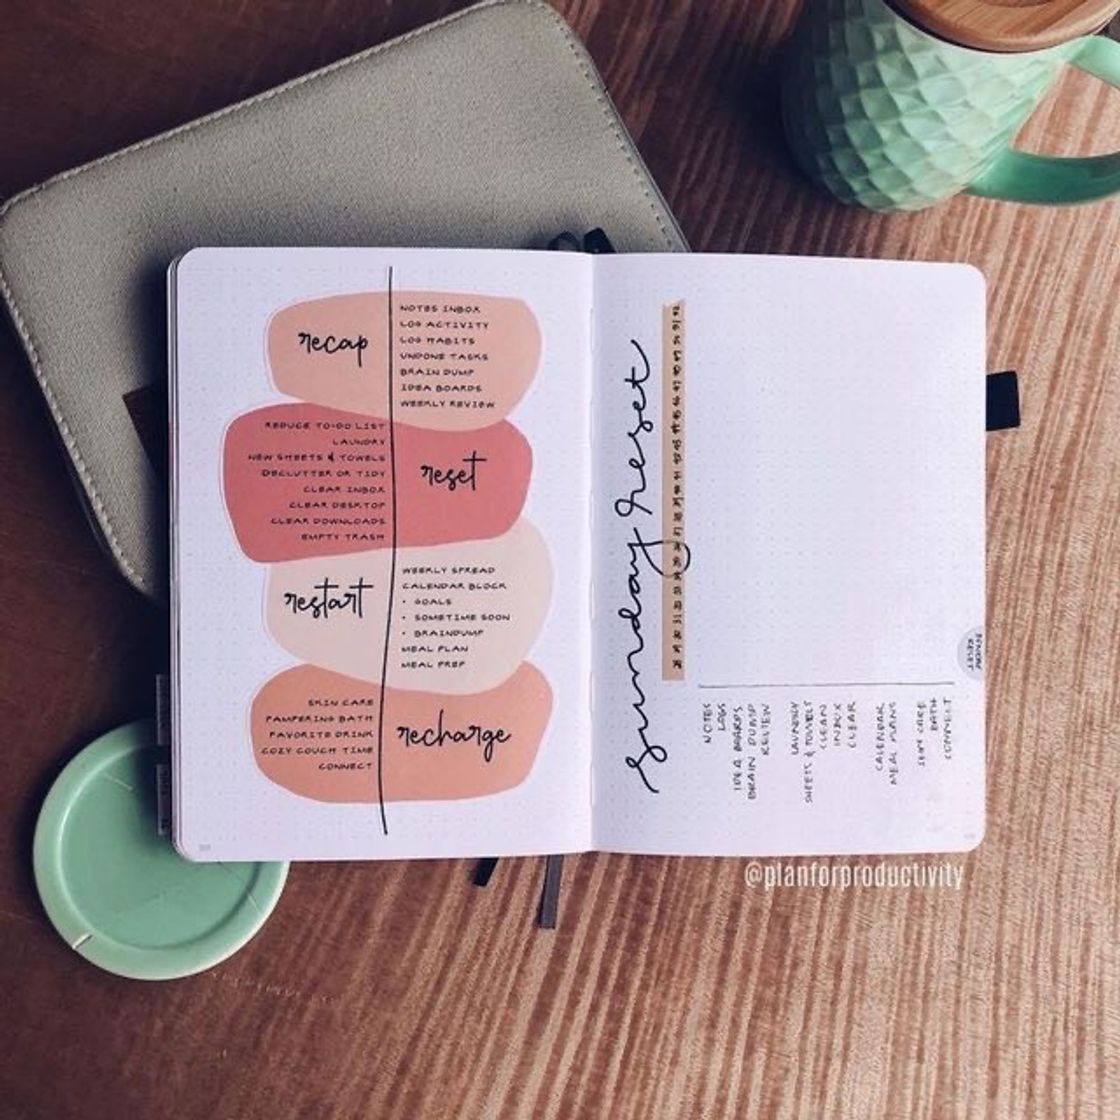 recap
NOTES INBOX
LOG ACTIVITY
LOG HABITS
UNDONE TASKS
BRAIN DUMP
IDEA BOARDS
WEEKLY REVIEW
REDUCE TO-DO LIST
LAUNDRY
NEW SHEETS & TOWELS
DECLUTTER OR TIDY
CLEAR INBOX
CLEAR DESKTOP
CLEAR DOWNLOADS
EMPTY TRASH
reset
restart
WEEKLY SPREAD
CALENDAR BLOCK
• GOALS
• SOMETIME SOON
• BRAINDUMP
MEAL PLAN
MEAL PREP
SKIN CARE
PAMPERING BATH
FAVORITE DRINK
COZY COUCH TIME
CONNECT
recharge
sunday reset
NOTES
LOGS
IDEA BOARDS
BRAIN DUMP
REVIEW
LAUNDRY
SHEETS & TOWELS
CLEAN
INBOX
CLEAR
CALENDAR
MEAL PLANS
SKIN CARE
BATH
CONNECT
SUNDAY
RESET
@planforproductivity